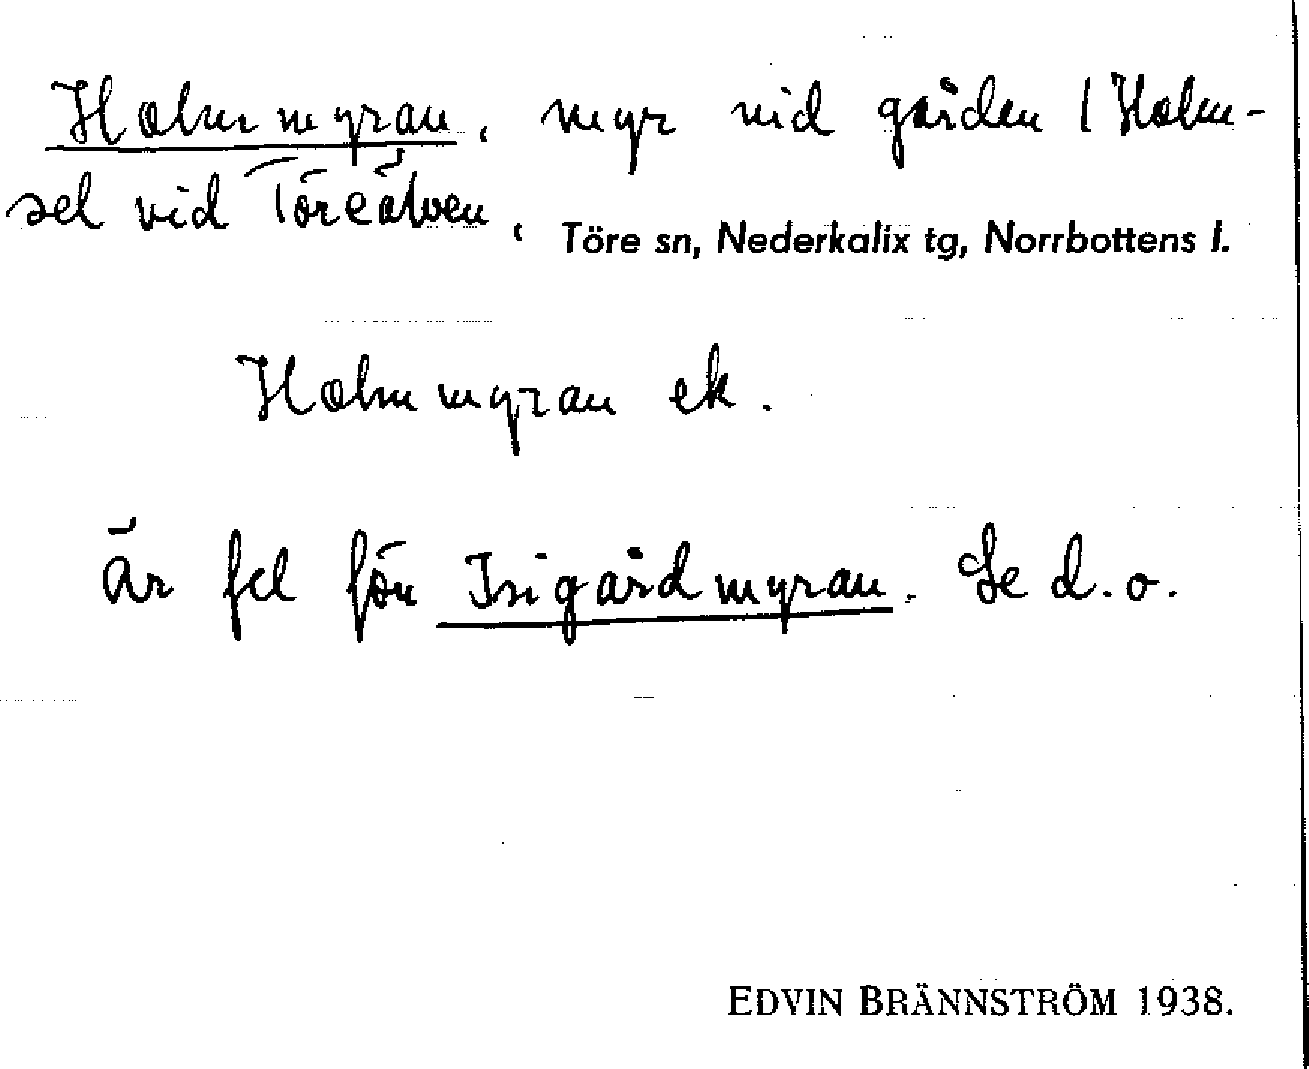 Holmmyran, myr vid gården 1 Holm-
sel vid Töreälven, Töre sn, Nederkalix tg, Norrbottens l.
Holmmyran ek.
är fel för Isigårdmyran. Se d.o.
EDVIN BRÄNNSTRÖM 1938.